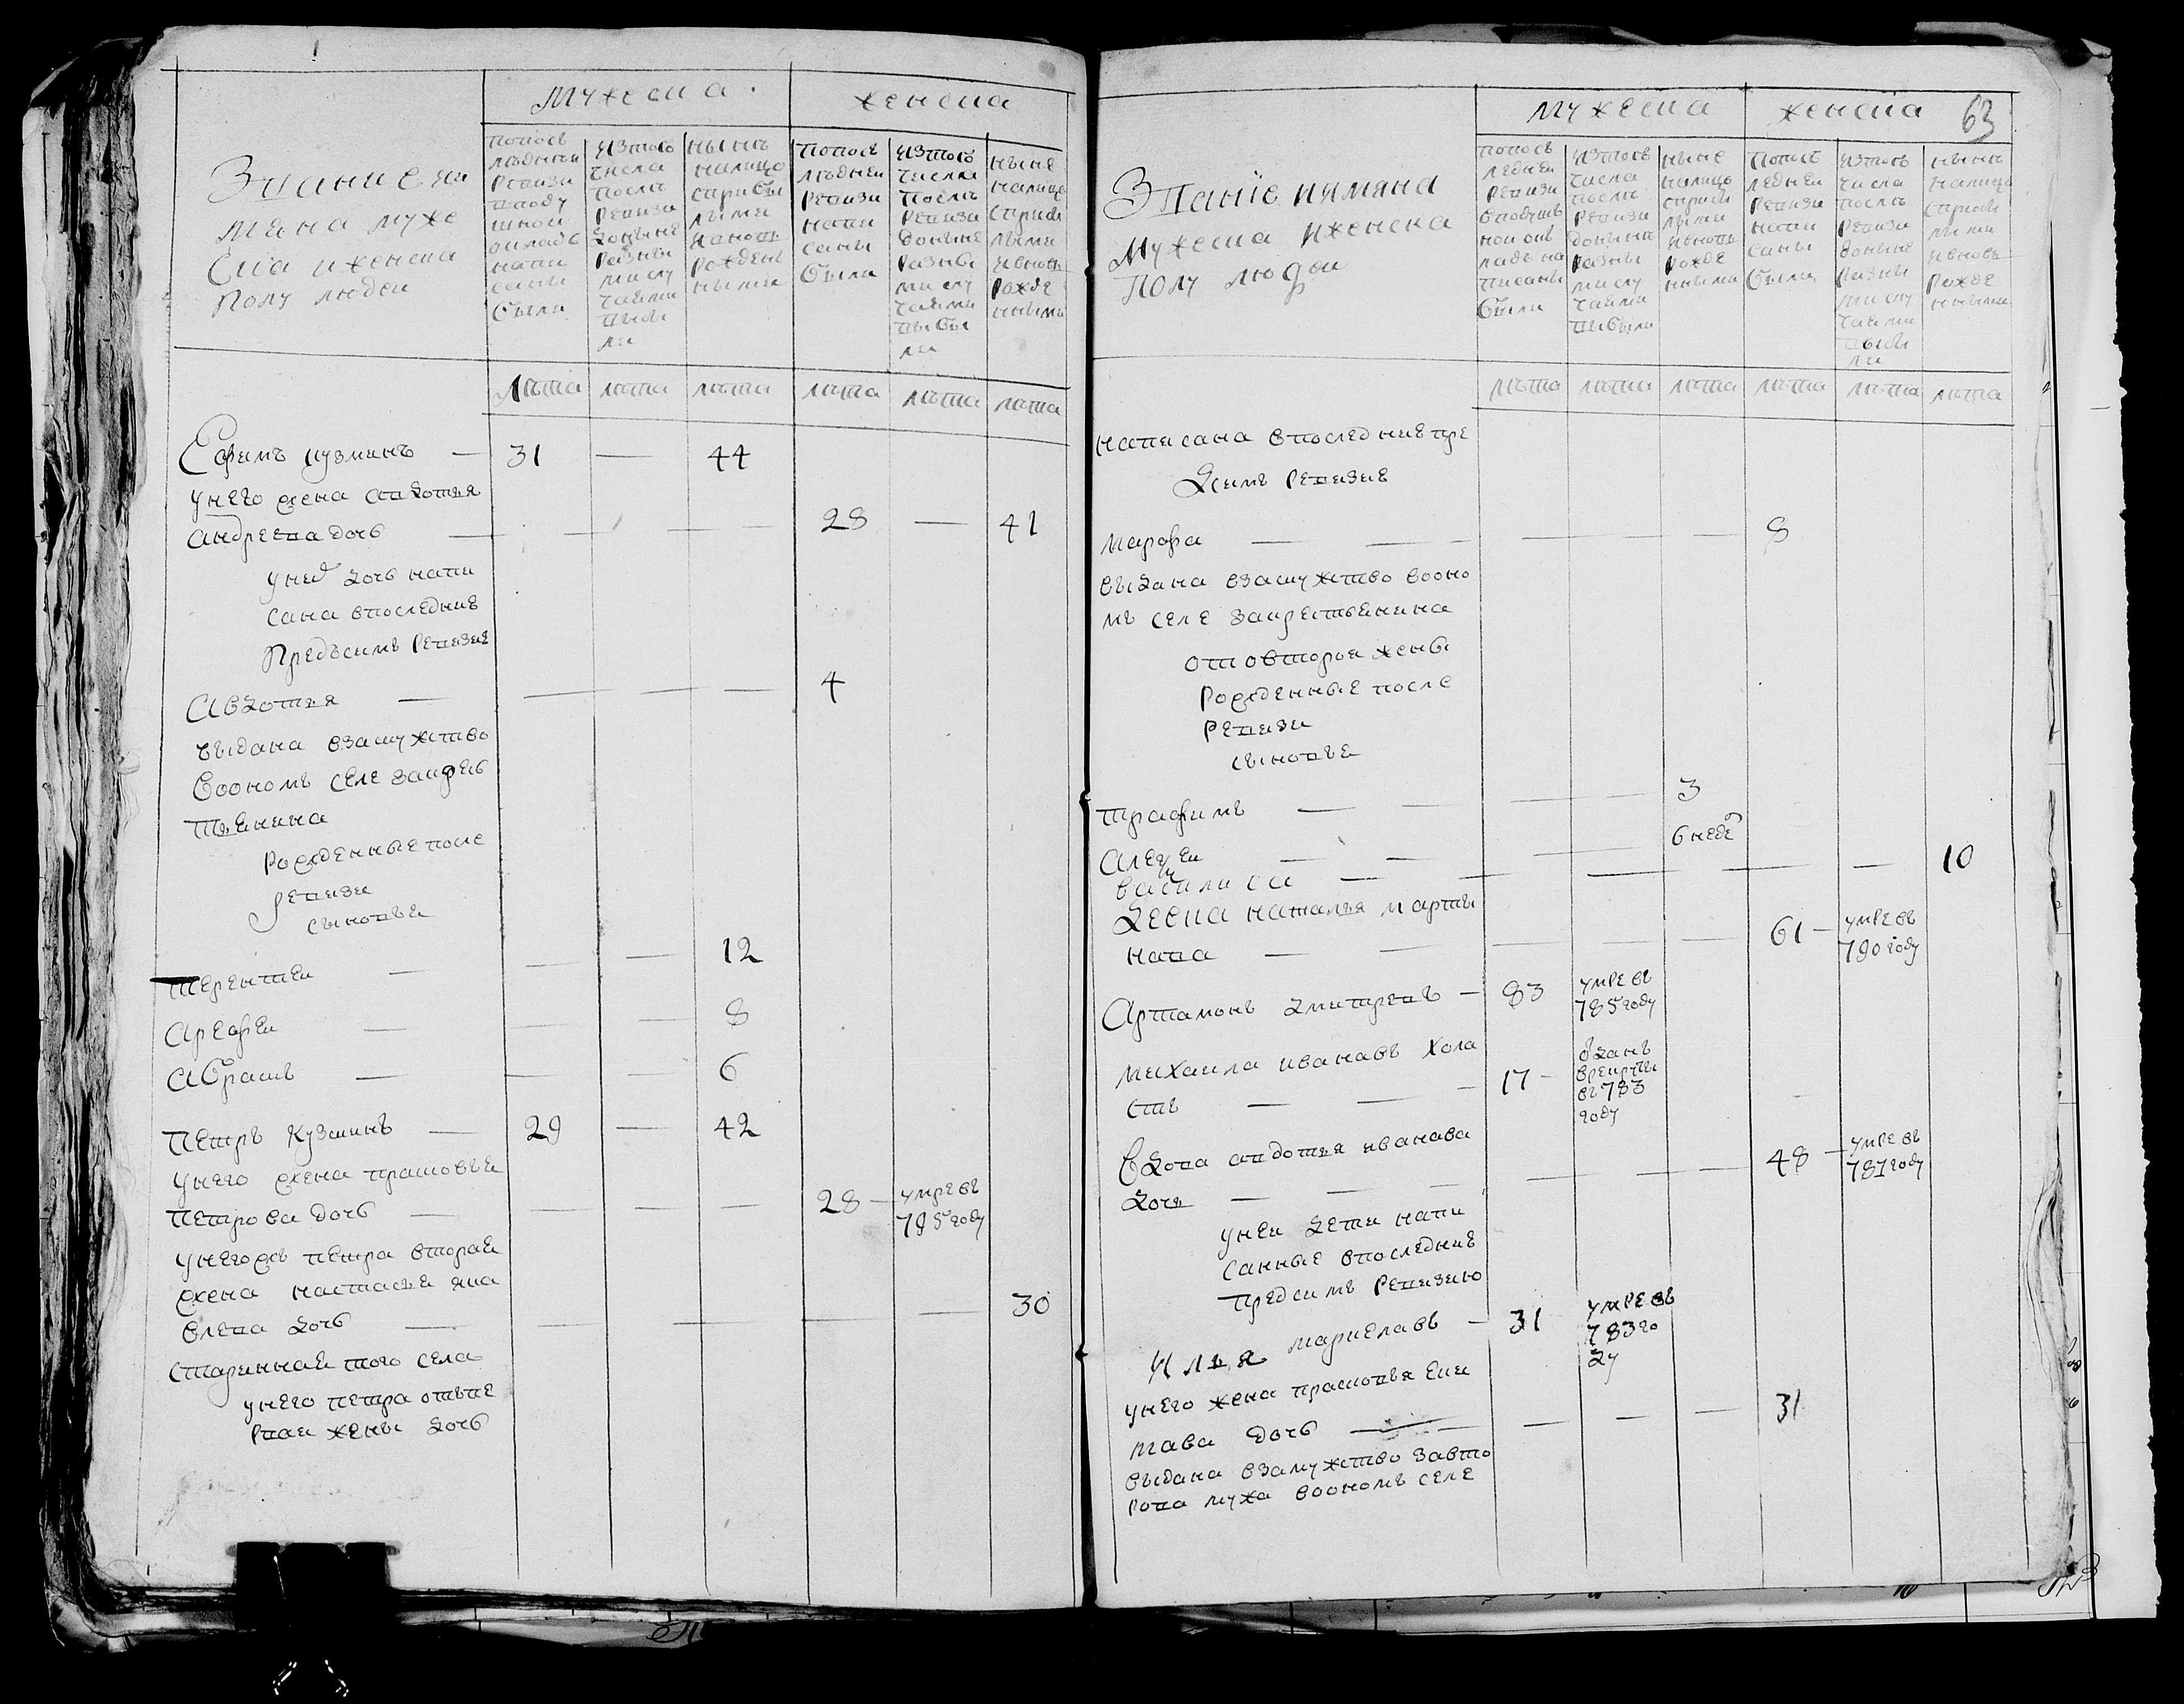 мужеска
женска
Звание и и
мяна муже
ска и женска
полу людеи
попосъ
лѣдънеи
ревизи
вподу
шнои
окладъ
напи
саны
были
изтого
числа
послъ
ревизи
доныне
разны
ми слу
чаями
выбы
ли
нынъ
налицо
сприбы
лыми
и вновь
рожден
ными
попосъ
лѣдънеи
ревизи
напи
саны
были
изтогъ
числа
послъ
ревизи
доныне
разны
ми слу
чаеми
выбы
ли
ныне
налицо
сприбы
лыми
ивновь
рожде
нными
лѣта лѣта лѣта лѣта лѣта лѣта
Ефимъ кузминъ — 31 — 44
унего жена авдотья
андреева дочь — 28 — 41
унеѣ дочь напи
сана впоследние
предъсимъ ревизие
Авдотья — 4
выдана взамужство
вооном селе закресь
тьянина
рожденные посе
ревизи
сыновьи
терентеи — 12
Арефеи — 8
Абрамъ — 6
Петръ кузминъ — 29 — 42
унего жена прасковьи
петрова дочь — 28 — умре въ
795 году
унегожъ петра вторая
жена настасьи яка
влева дочь — 30
старинная того села
унего петра отпе
рваи жены дочь
63
мужеска
женска
Звание иимяна
мужеска иженска
полу людеи
попосъ
ледънеи
ревизи
вподуш
ном ок
ладъ на
писаны
были
изтогъ
числа
послъ
ревизи
донынъ
разны
ми слу
чаями
выбыли
ныне
налицо
сприбы
лыми
ивновь
рожде
нными
попосъ
леднеи
ревизи
напи
саны
были
изтогъ
числа
послъ
ревизи
доныне
разны
ми слу
чаями
выбы
ли
нынъ
налицо
сприбы
лыми
ивновь
рожде
нными
лѣта лѣта лѣта лѣта лѣта лѣта
написана впоследние пре
дсимъ ревизиъ
марфа — 8
выдана взамужство вооно
мъ селе закрестьянина
отовторыи жены
рожденные после
ревизи
сыновьи
Трафимъ — 3
Алекѣи — 6 неде
василиса — 10
девка наталья марты
нава — 61 — умре въ
790 году
Артамонъ дмитревъ — 83 умре въ
785 году
михаила иванавъ хола
стъ — 17 — ѡданъ
врекруты
въ 783
году
вдова авдотья иванава
дочь — 48 — умре въ
787 году
унеи дети напи
санные впоследниъ
предсимъ ревизию
Илья маркелавъ — 31 умре въ
783 го
ду
унего жена прасковья еки
мава дочь — 31
выдана взамужство завто
рова мужа вооном селе